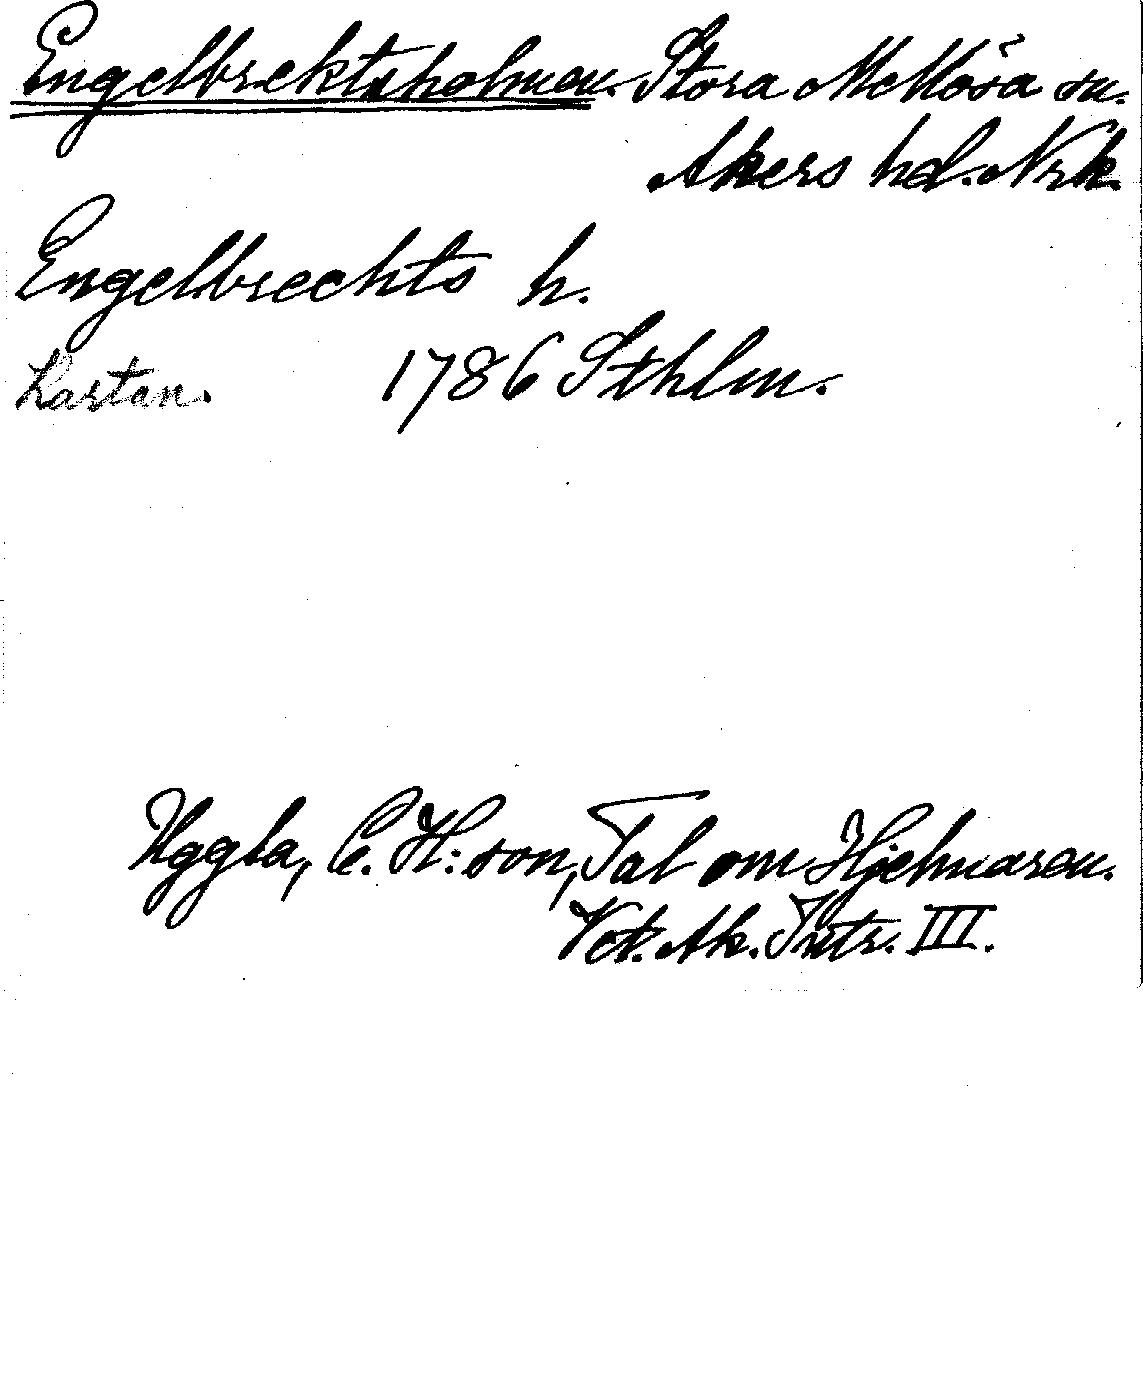 Engelbrektsholmen. Stora Mellösa sn.
Akers hd. Nrk.
Engelbrechts h.
Kartan. 1786 Sthlm.
Uggla, C. H:son, Tal om Hjelmaren.
Vet. Ak. Intr. III.